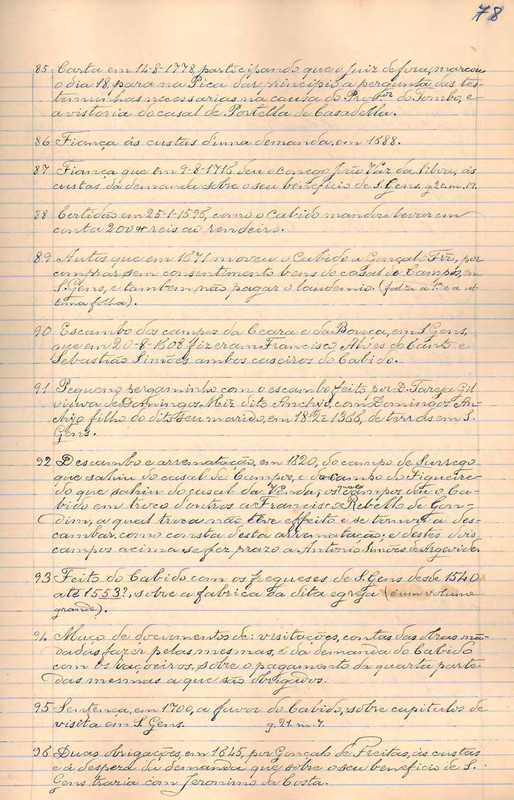 78
85 Carta em 14-8-1778, participando que o Juiz de fora, marcou
o dia 18, para na Pica dar principio a pergunta das tes-
temunhas necessarias na causa do Tombo, e
a vistoria do casal de Portella de Casadella.
86 Fiança ás custas d'uma demanda, em 1688.
87 Fiança que em 9-8-1716 deu o conego João Vaz da Silva, ás
custas da demanda sobre o seu beneficio de S. Gens. g. 22. m. 17.
88 Certidão em 25-1-1596, como o Cabido mandou levar em
conta 200 reis ao rendeiro.
89 Autos que em 1671 moveu o Cabido a Gonçalo Frz, por
comprar sem consentimento bens do casal de Campos, em
S. Gens, e tambem não pagar o laudemio. (falta a 1ª e a ul-
tima folha).
90 Escambo dos campos da Ceara e da Bouça, em S. Gens,
que em 20-8-1602 fizeram Francisco Alves do Canto e
Sebastião Simões ambos caseiros do Cabido.
91 Pequeno pergaminho com o escambo feito por D. Tareja Gil
viuva de Domingos Miz dito Anchijo, com Domingos An-
chijo filho do dito seu marido, em 18-2-1366, de terras em S.
Gens.
92 Descambo e arrematação, em 1820, do campo de Surrego
que sahiu do casal de Campos, e do campo do Figueire-
do que sahiu do casal da Venda, os quaes campos deu o Ca-
bido em troco d'outros a Francisco Rebello de Gon-
dim, a qual troca não teve effeito e se tornou a des-
cambar, como consta desta arrematação; e destes dois
campos acima se fez prazo a Antonio Simões de Argavide.
93 Feito do Cabido com os fregueses de S. Gens desde 1540
até 1553?, sobre a fabrica da dita egreja (é um volume
grande).
94 Maço de documentos de: visitações, contas das obras man-
dadas fazer pelas mesmas, e da demanda do Cabido
com os raçoeiros, sobre o pagamento da quarta parte
das mesmas a que são obrigados.
95 Sentença, em 1700, a favor do Cabido, sobre capitulos de
visita em S. Gens. g. 21. m. 7.
96 Duas obrigações, em 1645, por Gonçalo de Freitas, ás custas
e á despesa da demanda que sobre o seu beneficio de S.
Gens, trazia com Jeronimo da Costa.